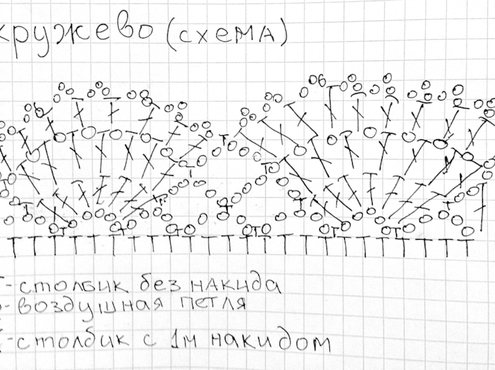 кружево (схема)
T - столбик без накида
о - воздушная петля
- столбик с 1м накидом